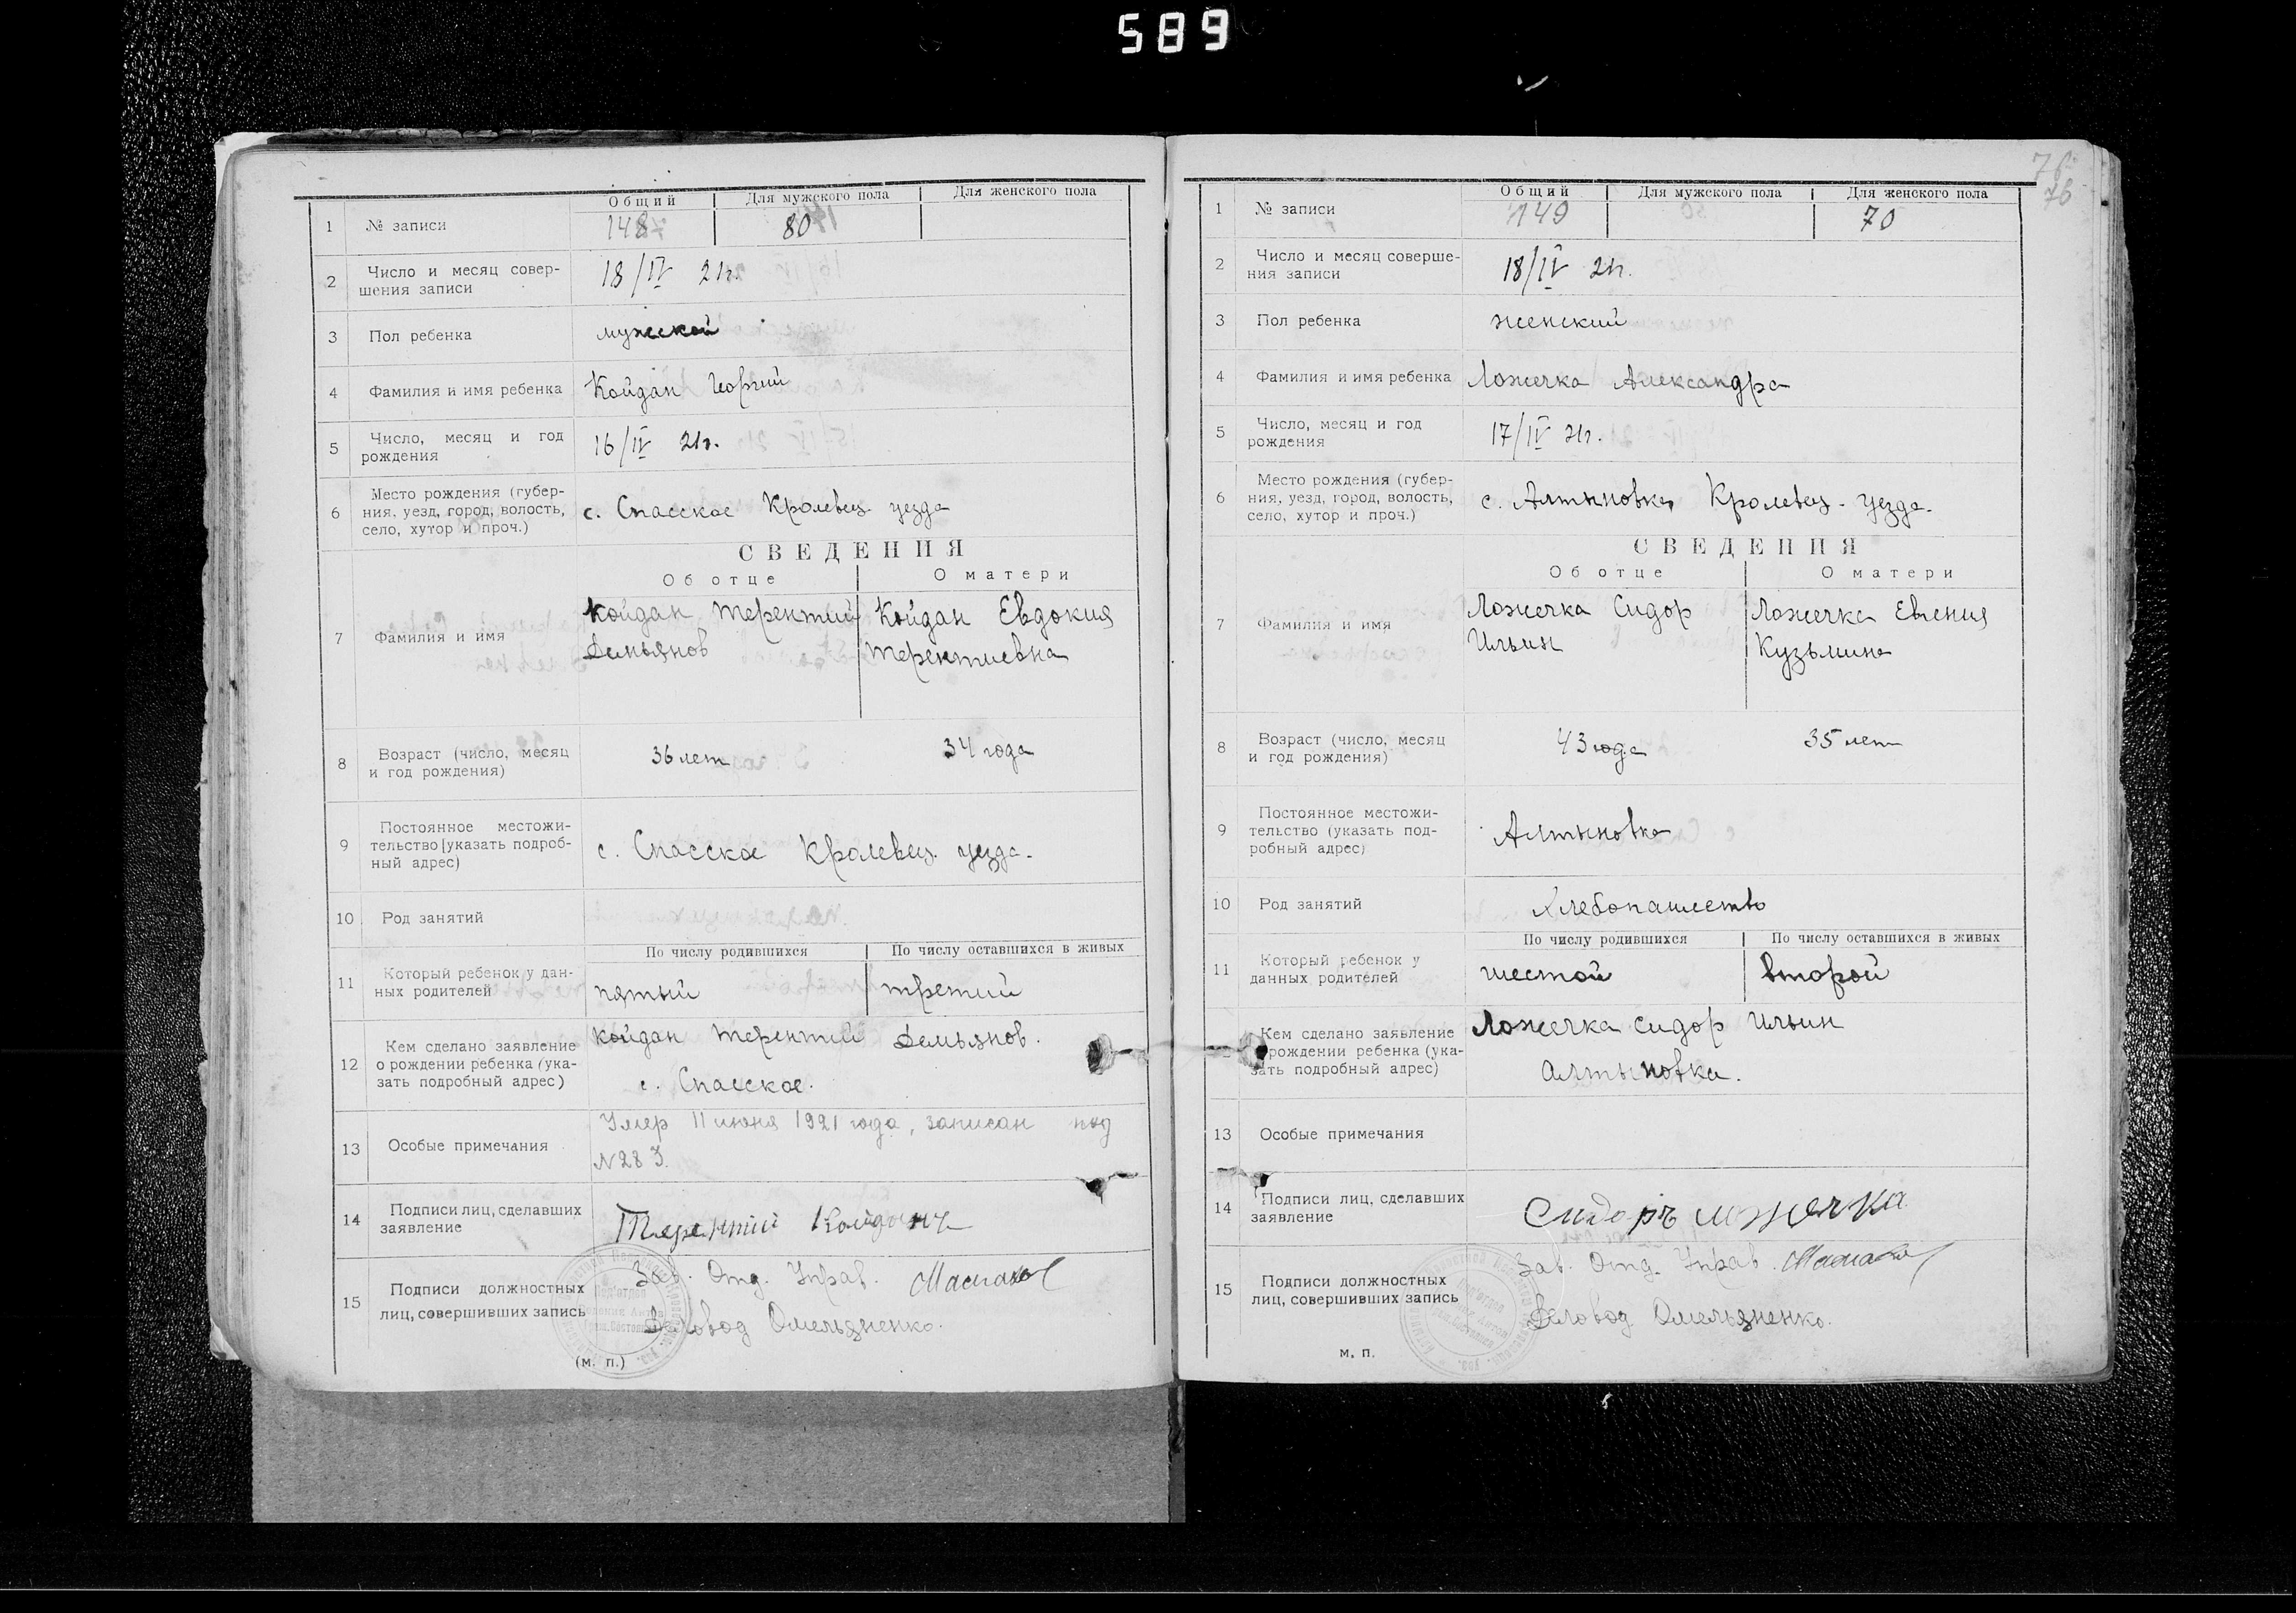 589
Общий Для мужского пола Для женского пола
1 № записи 148 80
2 Число и месяц совер-
шения записи 18/IV 21г.
3 Пол ребенка мужской
4 Фамилия и имя ребенка Койдан Георгий
5 Число, месяц и год
рождения 16/IV 21г.
6 Место рождения (губер-
ния, уезд, город, волость,
село, хутор и проч.) с. Спасское Кролевец. уезда
СВЕДЕНИЯ
Об отце О матери
7 Фамилия и имя
Койдан Терентий Койдан Евдокия
Демьянов Терентиевна
8 Возраст (число, месяц
и год рождения) 36 лет 34 года
9 Постоянное местожи-
тельство [указать подроб-
ный адрес) с. Спасское Кролевец. уезда.
10 Род занятий
По числу родившихся По числу оставшихся в живых
11 Который ребенок у дан-
ных родителей пятый третий
12 Кем сделано заявление
о рождении ребенка (ука-
зать подробный адрес) Койдан Терентий Демьянов.
с. Спасское.
13 Особые примечания Умер 11 июня 1921 года, записан под
№ 283.
14 Подписи лиц, сделавших
заявление Терентий
15 Подписи должностных
лиц, совершивших запись Зав. Отд. Управ.
Деловод Омельяненко.
(м. п.)
76
76
Общий Для мужского пола Для женского пола
1 № записи 149 70
2 Число и месяц соверше-
ния записи 18/IV 21г.
3 Пол ребенка женский
4 Фамилия и имя ребенка Ложечка Александра
5 Число, месяц и год
рождения 17/IV 21г.
6 Место рождения (губер-
ния, уезд, город, волость,
село, хутор и проч.) с. Алтыновка Кролевец. уезда.
СВЕДЕНИЯ
Об отце О матери
7 Фамилия и имя
Ложечка Сидор Ложечка Евгения
Ильин Кузьмина
8 Возраст (число, месяц
и год рождения) 43 года 35 лет
9 Постоянное местожи-
тельство (указать под-
робный адрес) Алтыновка
10 Род занятий Хлебопашество
По числу родившихся По числу оставшихся в живых
11 Который ребенок у
данных родителей шестой второй
Кем сделано заявление
рождении ребенка (ука-
зать подробный адрес) Ложечка Сидор Ильин
Алтыновка.
13 Особые примечания
14 Подписи лиц, сделавших
заявление Сидоръ ложечка
15 Подписи должностных
лиц, совершивших запись Зав. Отд. Управ.
Деловод Омельяненко.
м. п.